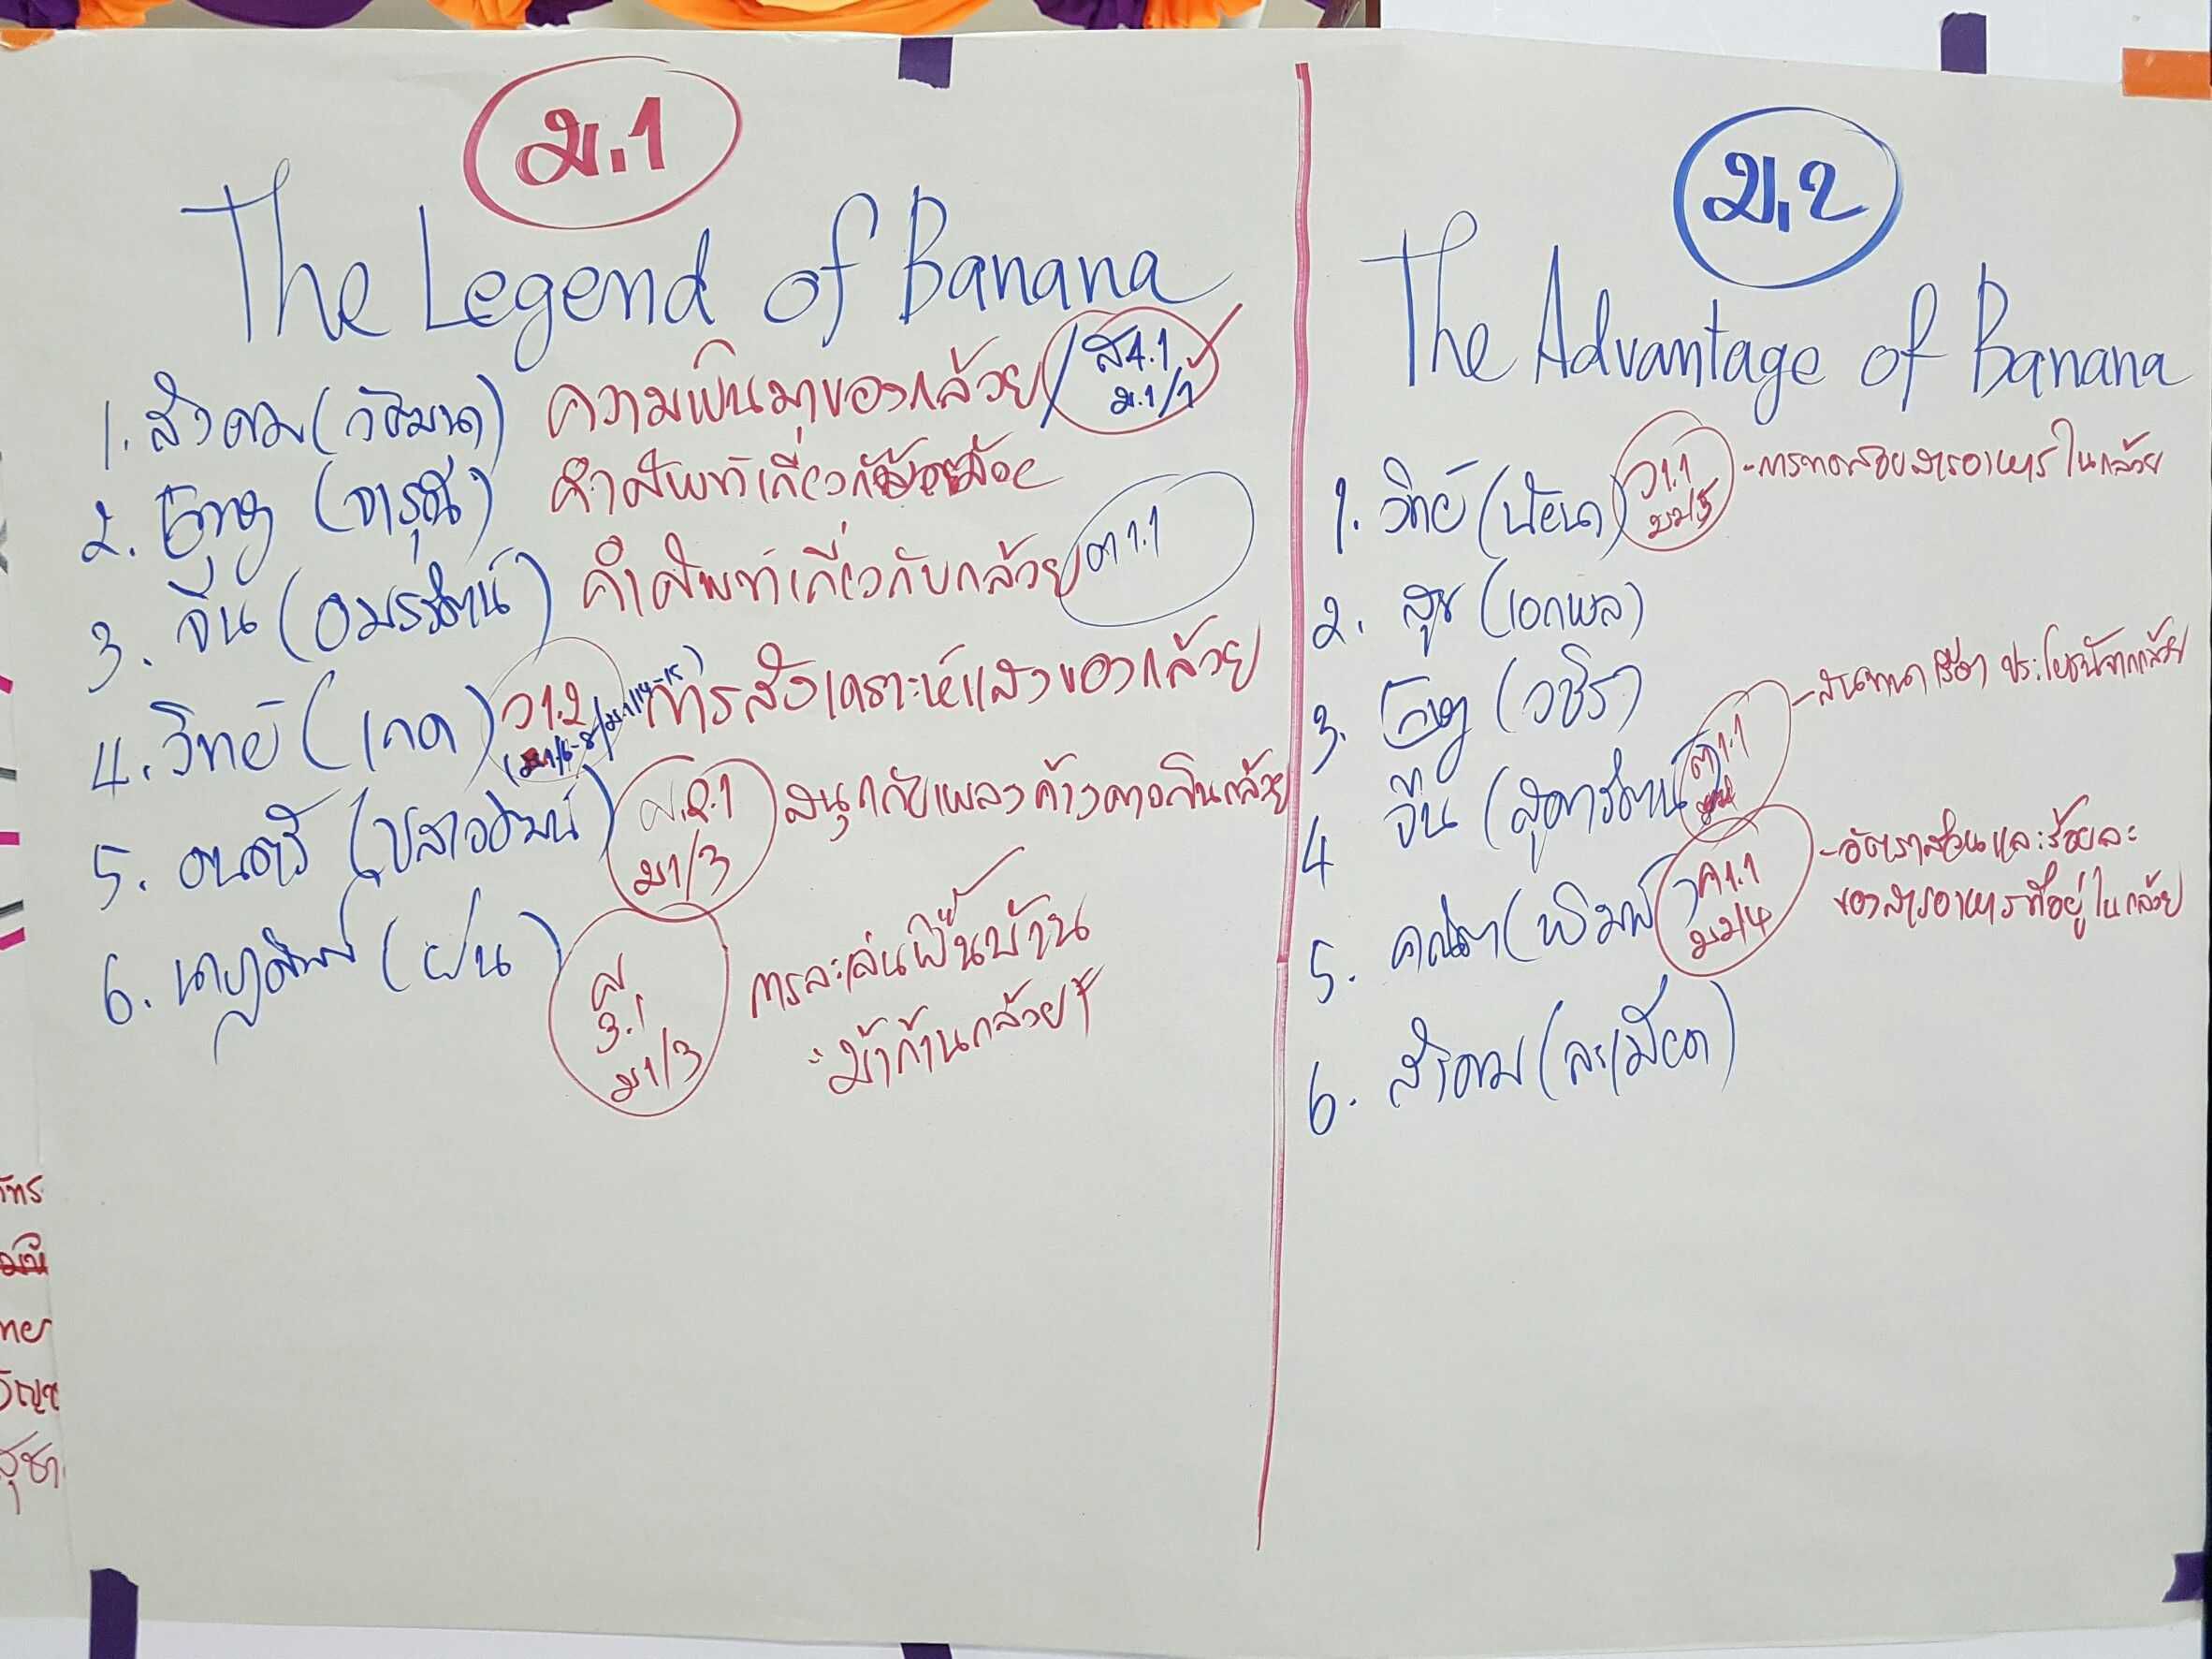 ม.1
The Legend of Banana
1. สังคม (วัชมาด) ความเป็นมาของกล้วย / ส4.1 ม.1/1
2. อังกฤษ (จารุณี) คำศัพท์เกี่ยวกับ
3. จีน (อมรรัตน์) คำศัพท์เกี่ยวกับกล้วย ต1.1
4. วิทย์ (เกด) ว1.2 การสังเคราะห์แสงของกล้วย
5. ดนตรี ศ.2.1 ม1/3 สนุกกับเพลงค้างคาวกินกล้วย
6. นาฏศิลป์ (ฝน) ศ 3.1 ม1/3 การละเล่นพื้นบ้าน
"ม้าก้านกล้วย"
ม.2
The Advantage of Banana
1. วิทย์ (นัยนา) ว1.1 - การทดสอบสารอาหารในกล้วย
2. สุข (เอกพล)
3. อังกฤษ (วชิรา)
4 จีน (สุดารัตน์) ต1.1 - สนทนาเรื่อง ประโยชน์จากกล้วย
5. คณิต (พิมพ์) ค1.1 ม.2/4 - อัตราส่วนและร้อยละ
ของสารอาหารที่อยู่ในกล้วย
6. สังคม (ละเมียด)